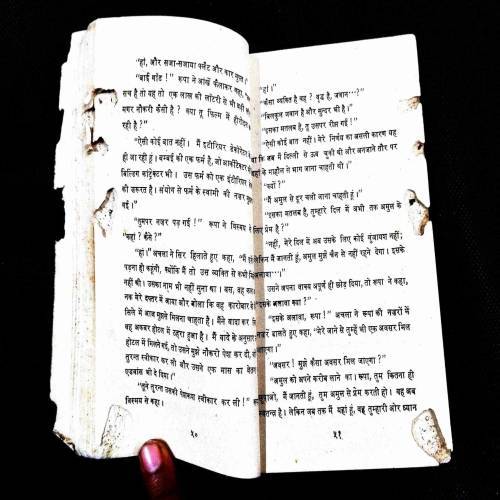 "हां, और सजा-सजाया फ्लैट और कार मुफ्त।"
"बाई गॉड!" रूपा ने आंखें फैलाकर कहा,
सच है तो यह तो एक लाख की लाटरी से भी
मगर नौकरी कैसी है? क्या तू फिल्म में हीरोइन
रही है?"
"ऐसी कोई बात नहीं। मैं इंटीरियर डेकोरेटर
ही जा रही हूं। बम्बई की एक फर्म है, जो आर्कीटेक्ट
बिल्डिंग कांट्रेक्टर भी। उस फर्म को एक इंटीरियर
की जरूरत है। संयोग से फर्म के स्वामी की नजर मुझपर
गई।"
"तुमपर नजर पड़ गई!" रूपा ने विस्मय
"कहां? कैसे?"
"हां।" अचला ने सिर हिलाते हुए कहा, "मैं
पड़ना ही कहूंगी, क्योंकि मैं तो उस व्यक्ति से कभी
नहीं थी। उसका नाम भी नहीं सुना था। बस, वह
नक मेरे दफ्तर में आया और बोला कि वह कारोबार
सिले में आज मुझसे मिलना चाहता है। मैंने वादा कर
वह अकबर होटल में ठहरा हुआ है। मैं वादे के अनुसार
होटल में मिलने गई, तो उसने मुझे नौकरी पेश कर दी,
तुरन्त स्वीकार कर ली और उसने एक मास का वेतन
एडवांस भी दे दिया।"
"तूने तुरन्त उसकी पेशकश स्वीकार कर ली!"
विस्मय से कहा।
५०
"हां।"
"कैसा व्यक्ति है वह? वृद्ध है, जवान···?"
"बिलकुल जवान है और सुन्दर भी है।"
"इसका मतलब है, तू उसपर रीझ गई!"
"ऐसी कोई बात नहीं। मेरे निर्णय का असली कारण यह
था कि अब मैं दिल्ली से ऊब चुकी थी और अनजाने तौर पर
यहां के माहौल से भाग जाना चाहती थी।"
"क्यों?"
"मैं अमुल से दूर चली जाना चाहती हूं।"
"इसका मतलब है, तुम्हारे दिल में अभी तक अमुल के
लिए प्रेम है?"
"नहीं, मेरे दिल में अब उसके लिए कोई गुंजायश नहीं;
लेकिन मैं जानती हूं, अमुल मुझे चैन से नहीं रहने देगा। इसके
अलावा···।"
उसने अपना वाक्य अपूर्ण ही छोड़ दिया, तो रूपा ने कहा,
"इसके अलावा क्या?"
"इसके अलावा, रूपा!" अचला ने रूपा की नज़रों में
नज़र डालते हुए कहा, "मेरे जाने से तुम्हें भी एक अवसर मिल
जाएगा।"
"अवसर! मुझे कैसा अवसर मिल जाएगा?"
"अमुल को अपने करीब लाने का। रूपा, तुम कितना ही
छुपाओ, मैं जानती हूं, तुम अमुल से प्रेम करती हो। वह अब
स्वतन्त्र है। लेकिन जब तक मैं यहां हूं, वह तुम्हारी ओर ध्यान
५१